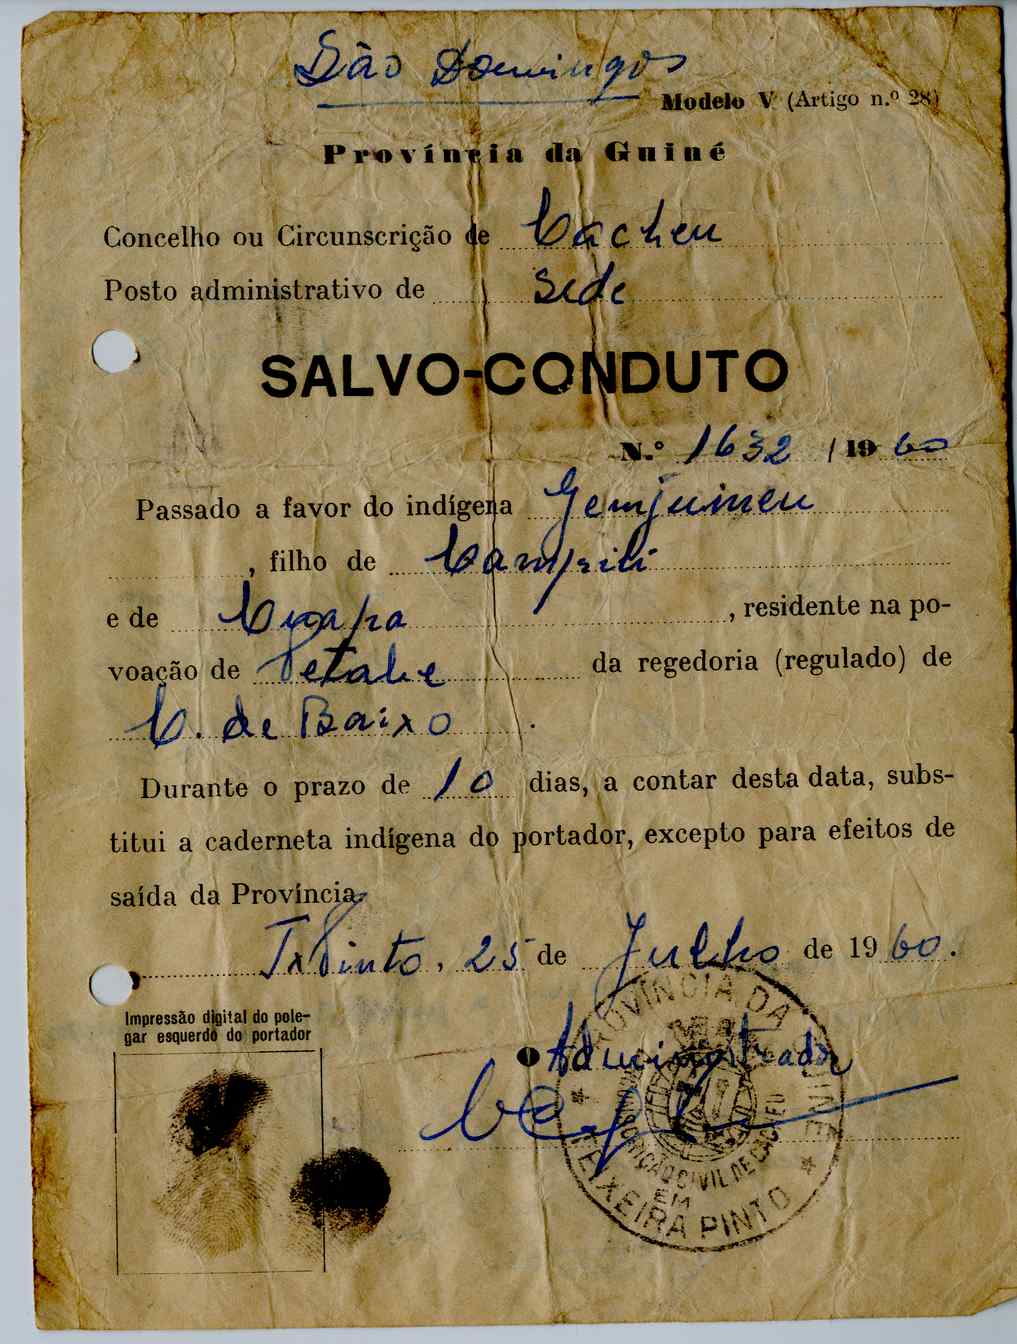 São Domingos
Modelo V (Artigo n.º 28)
Província da Guiné
Concelho ou Circunscrição de Cacheu
Posto administrativo de Sede
SALVO-CONDUTO
N.º 1632 / 19 60
Passado a favor do indígena Gemjuimeu
, filho de Campili
e de , residente na po-
voação de Petabe da regedoria (regulado) de
C. de Baixo .
Durante o prazo de 10 dias, a contar desta data, subs-
titui a caderneta indígena do portador, excepto para efeitos de
saída da Província
TxPinto, 25 de Julho de 19 60.
Impressão digital do pole-
gar esquerdo do portador
O Administrador
PROVÍNCIA DA GUINÉ
CIRCUNSCRIÇÃO CIVIL DE CACHEU
EM
TEIXEIRA PINTO